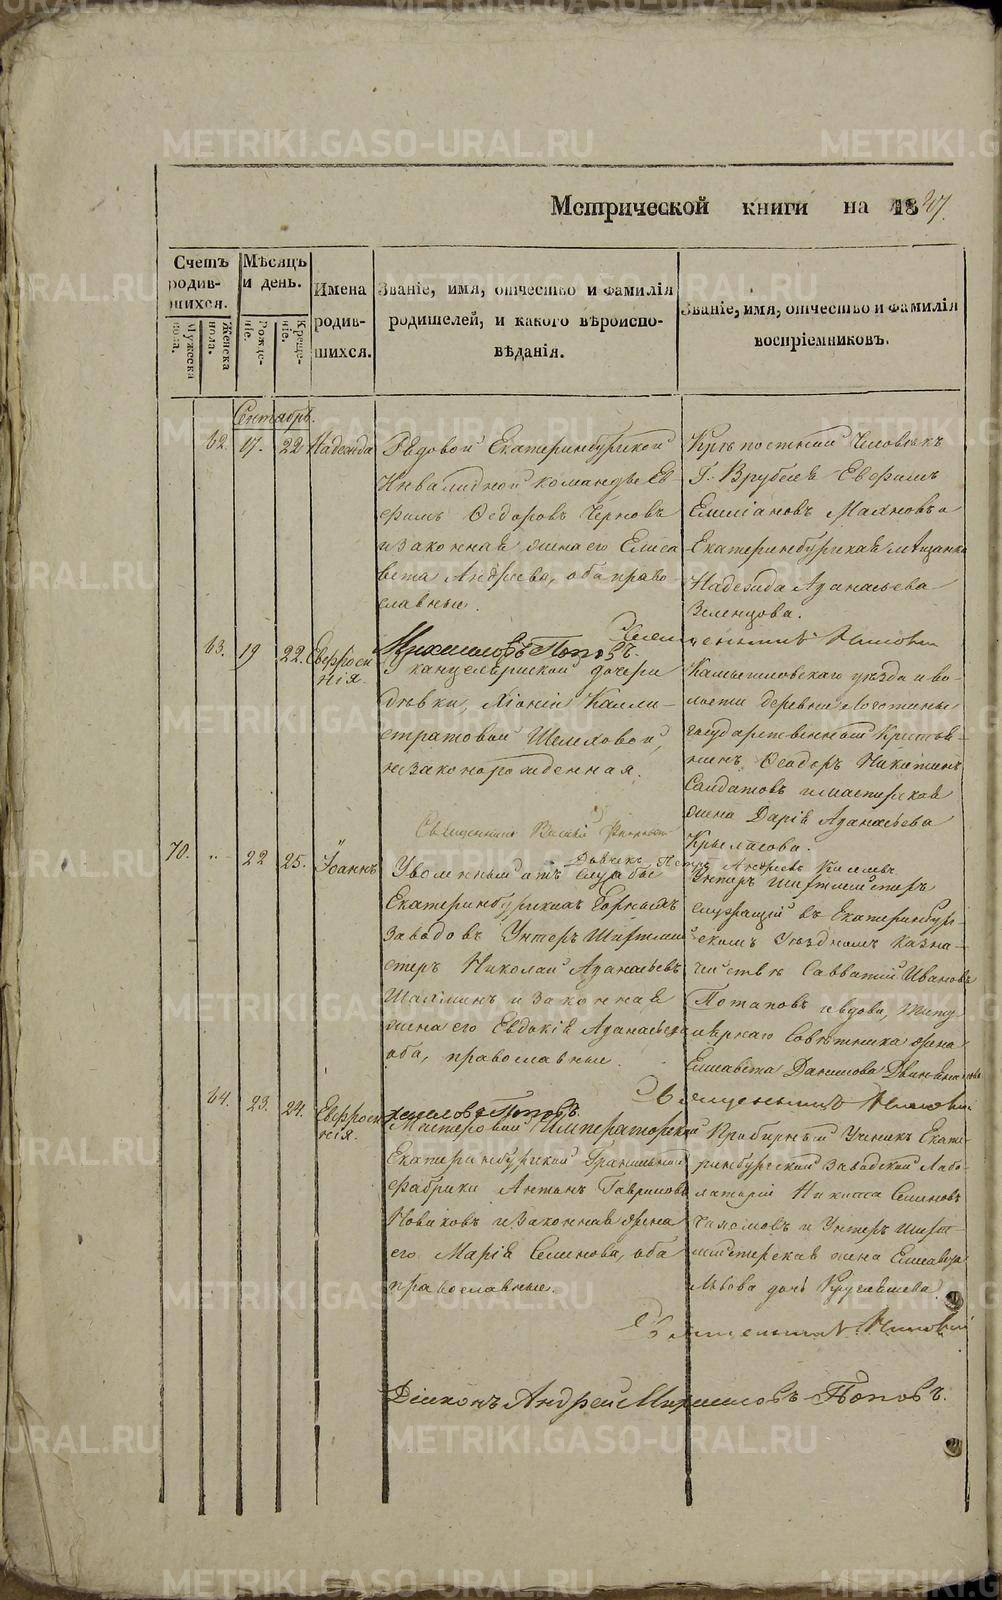 METRIKI.GASO-URAL.RU
Метрической книги на 1847.
Счетъ родив-шихся.
Мужеска пола.
Женска пола.
Мѣсяцъ и день.
Рожде-ніе.
Креще-ніе.
Имена родив-шихся.
Званіе, имя, отчество и фамилія
родителей, и какого вѣроиспо-
вѣданія.
Званіе, имя, отчество и фамилія
воспріемниковъ.
Сентябрь.
62. 17. 22 Надежда
Рядовой Екатеринбургской
Инвалидной команды Ев
фимъ Федоровъ Черновъ
и законная жена его Елиса
вета Андреева, оба право
славные.
Крѣпостный Человекъ
Г. Врублея Евфимъ
Емилiановъ Маяновъ и
Екатеринбургская мѣщанка
Надежда Аѳанасьева
Зеленцова.
Михаиловъ Поповъ.
63. 19 22. Евфроси
нія.
У канцелярской дочери
дѣвки, Хіоніи Калли
стратовой Шелеховой,
незаконорожденная.
Камышловскаго уезда и во-
лости деревни
государственной Крестья-
нинъ Феодоръ Никитинъ
Солдатовъ и мастерская
жена Дарія Аѳанасьева
Крыласова.
Священникъ Василій
Дьячекъ Петръ Андреевъ
70. „ 22 25. Іоаннъ
Уволенный отъ службы
Екатеринбургскихъ Горныхъ
Заводовъ Унтеръ Шихтмей
стеръ Николай Аѳанасьевъ
и законная
жена его Евдокія Аѳанасьева
оба, православные.
Унтеръ Шихтмейстеръ
служащій въ Екатеринбург-
скомъ Уездномъ Казна-
чействе Савватій Ивановъ
Потаповъ и вдова, Титу
лярнаго Советника жена
Елисавета Данилова
Священникъ
64. 23. 24. Евфроси
нія.
хаиловъ Поповъ
Мастеровой Императорской
Екатеринбургской Гранильной
фабрики Антонъ Гавриловъ
Новиковъ и законная жена
его Марія Семенова, оба
православные.
Пробирный Ученикъ Екате-
ринбургской заводской Лабо-
раторіи Никита Семеновъ
и Унтеръ Шихт-
мейстерская жена Елисавета
Львова дочь
Священникъ
Діаконъ Андрей Михаиловъ Поповъ.